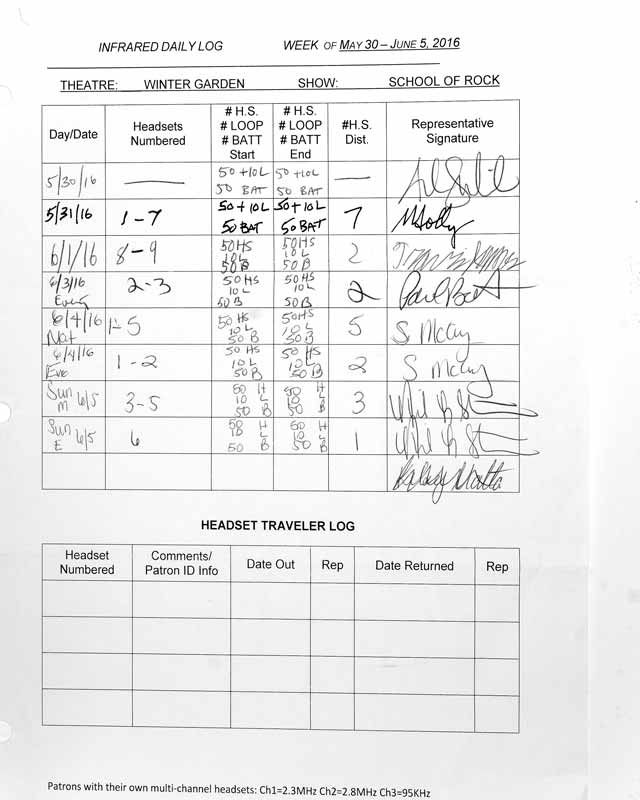 INFRARED DAILY LOG WEEK OF MAY 30 – JUNE 5, 2016
THEATRE: WINTER GARDEN SHOW: SCHOOL OF ROCK
Day/Date Headsets Numbered # H.S. # LOOP # BATT Start # H.S. # LOOP # BATT End #H.S. Dist. Representative Signature
5/30/16 — 50 + 10L 50 BAT 50 + 10L 50 BAT —
5/31/16 1-7 50 + 10L 50 BAT 50 + 10L 50 BAT 7
6/1/16 8-9 50HS 10L 50B 50HS 10L 50B 2
6/3/16 Eveng 2-3 50HS 10L 50B 50HS 10L 50B 2 Paul
6/4/16 Mat 1-5 50HS 10L 50B 50HS 10L 50B 5 S McCay
6/4/16 Eve 1-2 50HS 10L 50B 50HS 10L 50B 2 S McCay
Sun M 6/5 3-5 50 H 10 L 50 B 50 H 10 L 50 B 3
Sun E 6/5 6 50 H 10 L 50 B 50 H 10 L 50 B 1
HEADSET TRAVELER LOG
Headset Numbered Comments/ Patron ID Info Date Out Rep Date Returned Rep
Patrons with their own multi-channel headsets: Ch1=2.3MHz Ch2=2.8MHz Ch3=95KHz